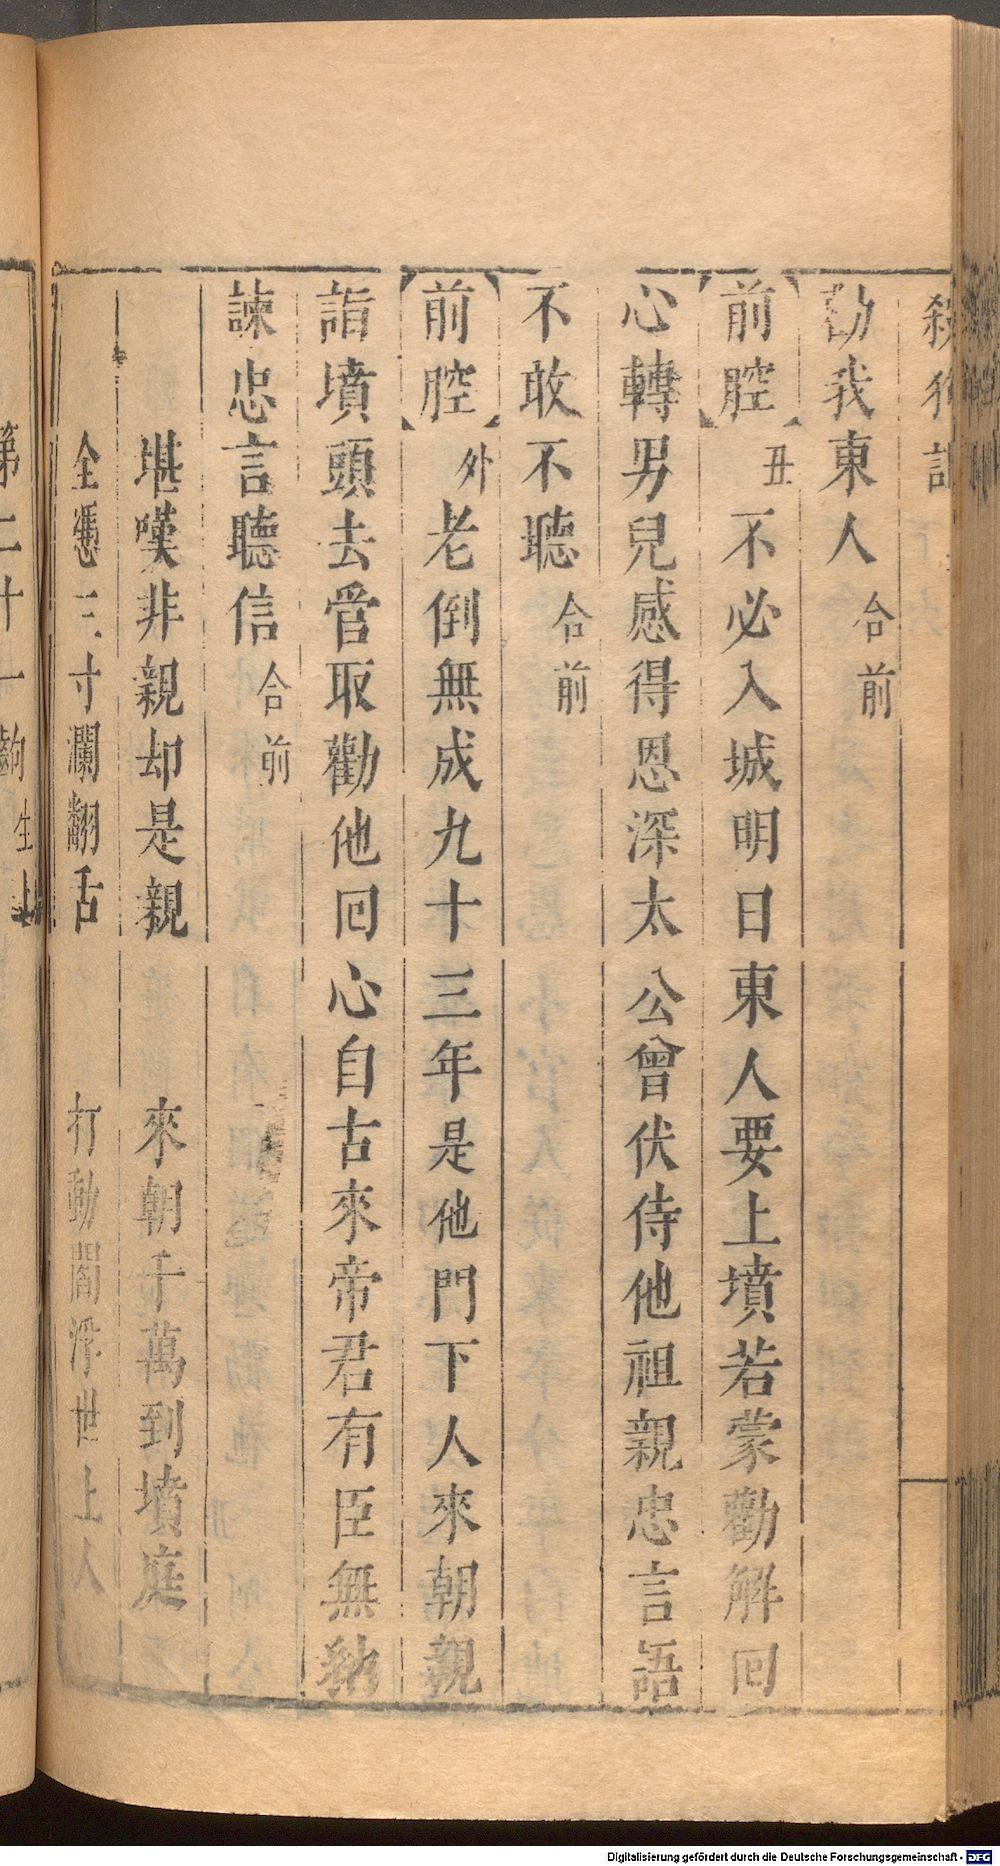 殺狗記
勸我東人合前
前腔丑不必入城明日東人要上墳若蒙勸解回
心轉男兒感得恩深太公曾伏侍他祖親忠言語
不敢不聽合前
前腔外老倒無成九十三年是他門下人來朝親
詣墳頭去管取勸他回心自古來帝君有臣無
諫忠言聽信合前
堪嘆非親却是親 來朝千萬到墳庭
全憑三寸瀾翻舌 打動閻浮世上人
第二十一齣生上
Digitalisierung gefördert durch die Deutsche Forschungsgemeinschaft - DFG